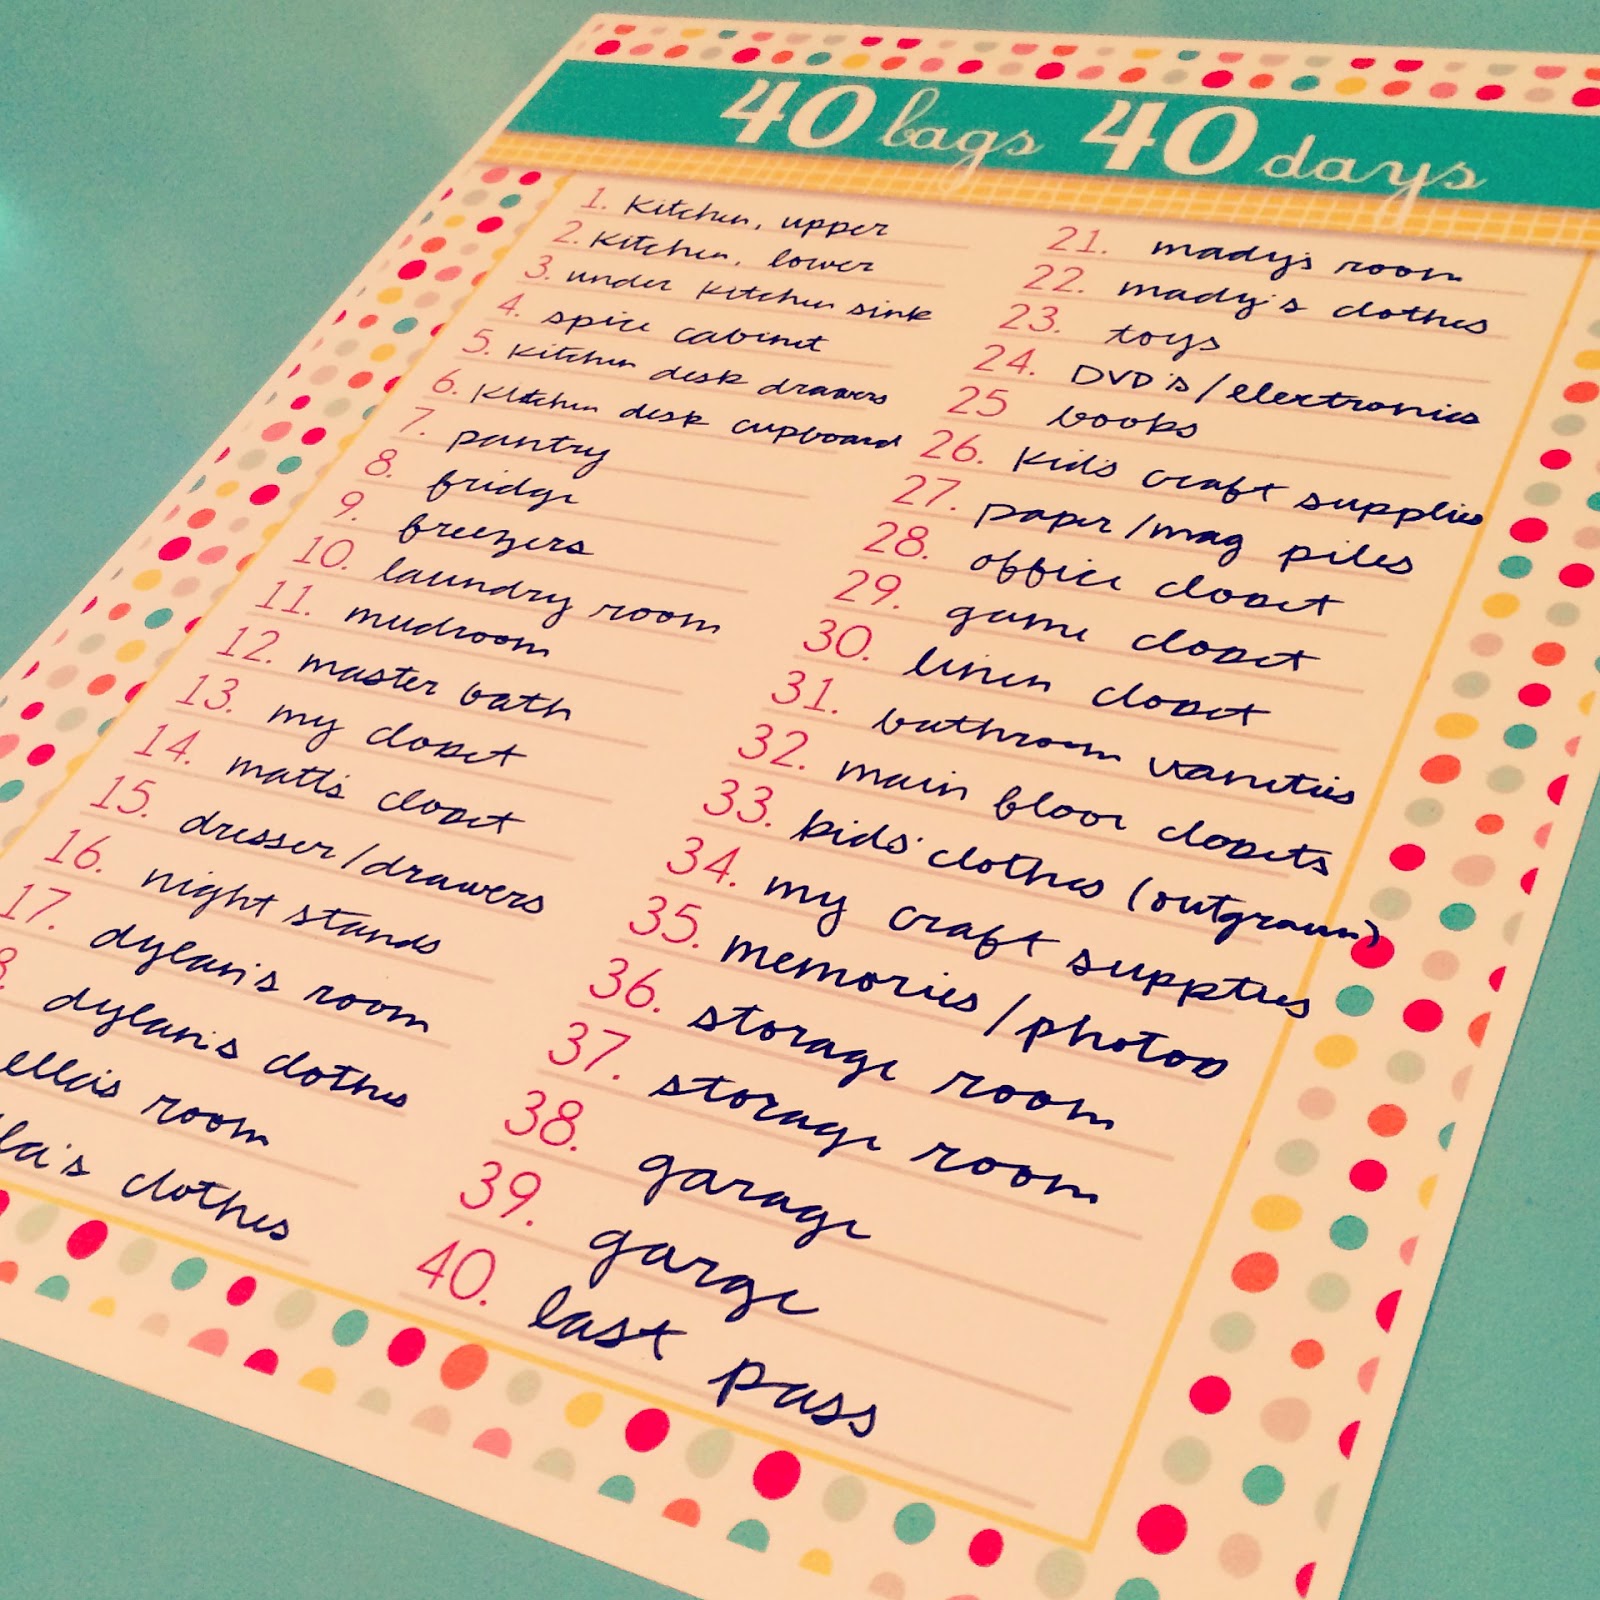 40 bags 40 days
1. Kitchen, upper
2. Kitchen, lower
3. under kitchen sink
4. spice cabinet
5. Kitchen desk drawers
6. Kitchen desk cupboard
7. pantry
8. fridge
9. freezers
10. laundry room
11. mudroom
12. master bath
13. my closet
14. matt's closet
15. dresser/drawers
16. night stands
17. dylan's room
8. dylan's clothes
ella's room
la's clothes
21. mady's room
22. mady's clothes
23. toys
24. DVD's/electronics
25 books
26. kid's craft supplies
27. paper/mag piles
28. office closet
29. game closet
30. linen closet
31. bathroom vanities
32. main floor closets
33. kids' clothes (outgrown)
34. my craft supplies
35. memories/photos
36. storage room
37. storage room
38. garage
39. garge
40. last pass